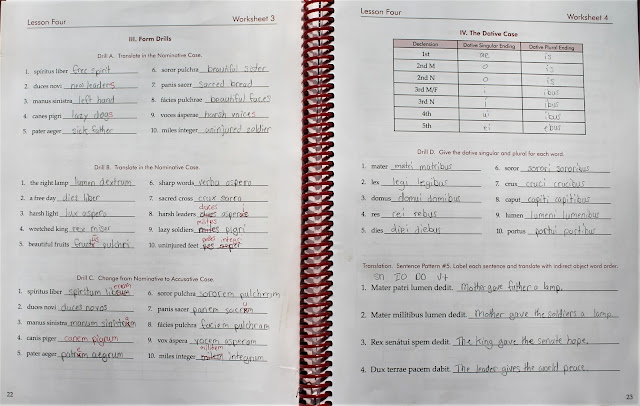 Lesson Four Worksheet 3
III. Form Drills
Drill A. Translate in the Nominative Case.
1. spíritus liber free spirit 6. soror pulchra beautiful sister
2. duces novi new leaders 7. panis sacer sacred bread
3. manus sinistra left hand 8. fácies pulchrae beautiful faces
4. canes pigri lazy dogs 9. voces ásperae harsh voices
5. pater aeger sick father 10. miles ínteger uninjured soldier
Drill B. Translate in the Nominative Case.
1. the right lamp lumen dextrum 6. sharp words verba aspera
2. a free day dies liber 7. sacred cross crux sacra
3. harsh light lux aspera 8. harsh leaders duces asperi
4. wretched king rex miser 9. lazy soldiers milites pigri
5. beautiful fruits fructus pulchri 10. uninjured feet pedes integri
Drill C. Change from Nominative to Accusative Case.
1. spíritus liber spiritum liberum 6. soror pulchra sororem pulchram
2. duces novi duces novos 7. panis sacer panem sacrum
3. manus sinistra manum sinistram 8. fácies pulchra faciem pulchram
4. canis piger canem pigrum 9. vox áspera vocem asperam
5. pater aeger patrem aegrum 10. miles ínteger militem integrum
22
Lesson Four Worksheet 4
IV. The Dative Case
Declension Dative Singular Ending Dative Plural Ending
1st ae is
2nd M o is
2nd N o is
3rd M/F i ibus
3rd N i ibus
4th ui ibus
5th ei ebus
Drill D. Give the dative singular and plural for each word.
1. mater matri matribus 6. soror sorori sororibus
2. lex legi legibus 7. crux cruci crucibus
3. domus domui domibus 8. caput capiti capitibus
4. res rei rebus 9. lumen lumeni lumenibus
5. dies diei diebus 10. portus portui portibus
Translation. Sentence Pattern #5. Label each sentence and translate with indirect object word order.
SN IO DO V-t
1. Mater patri lumen dedit. Mother gave father a lamp.
2. Mater milítibus lumen dedit. Mother gave the soldiers a lamp
3. Rex senátui spem dedit. The King gave the senate hope.
4. Dux terrae pacem dabit. The leader gives the world peace.
23